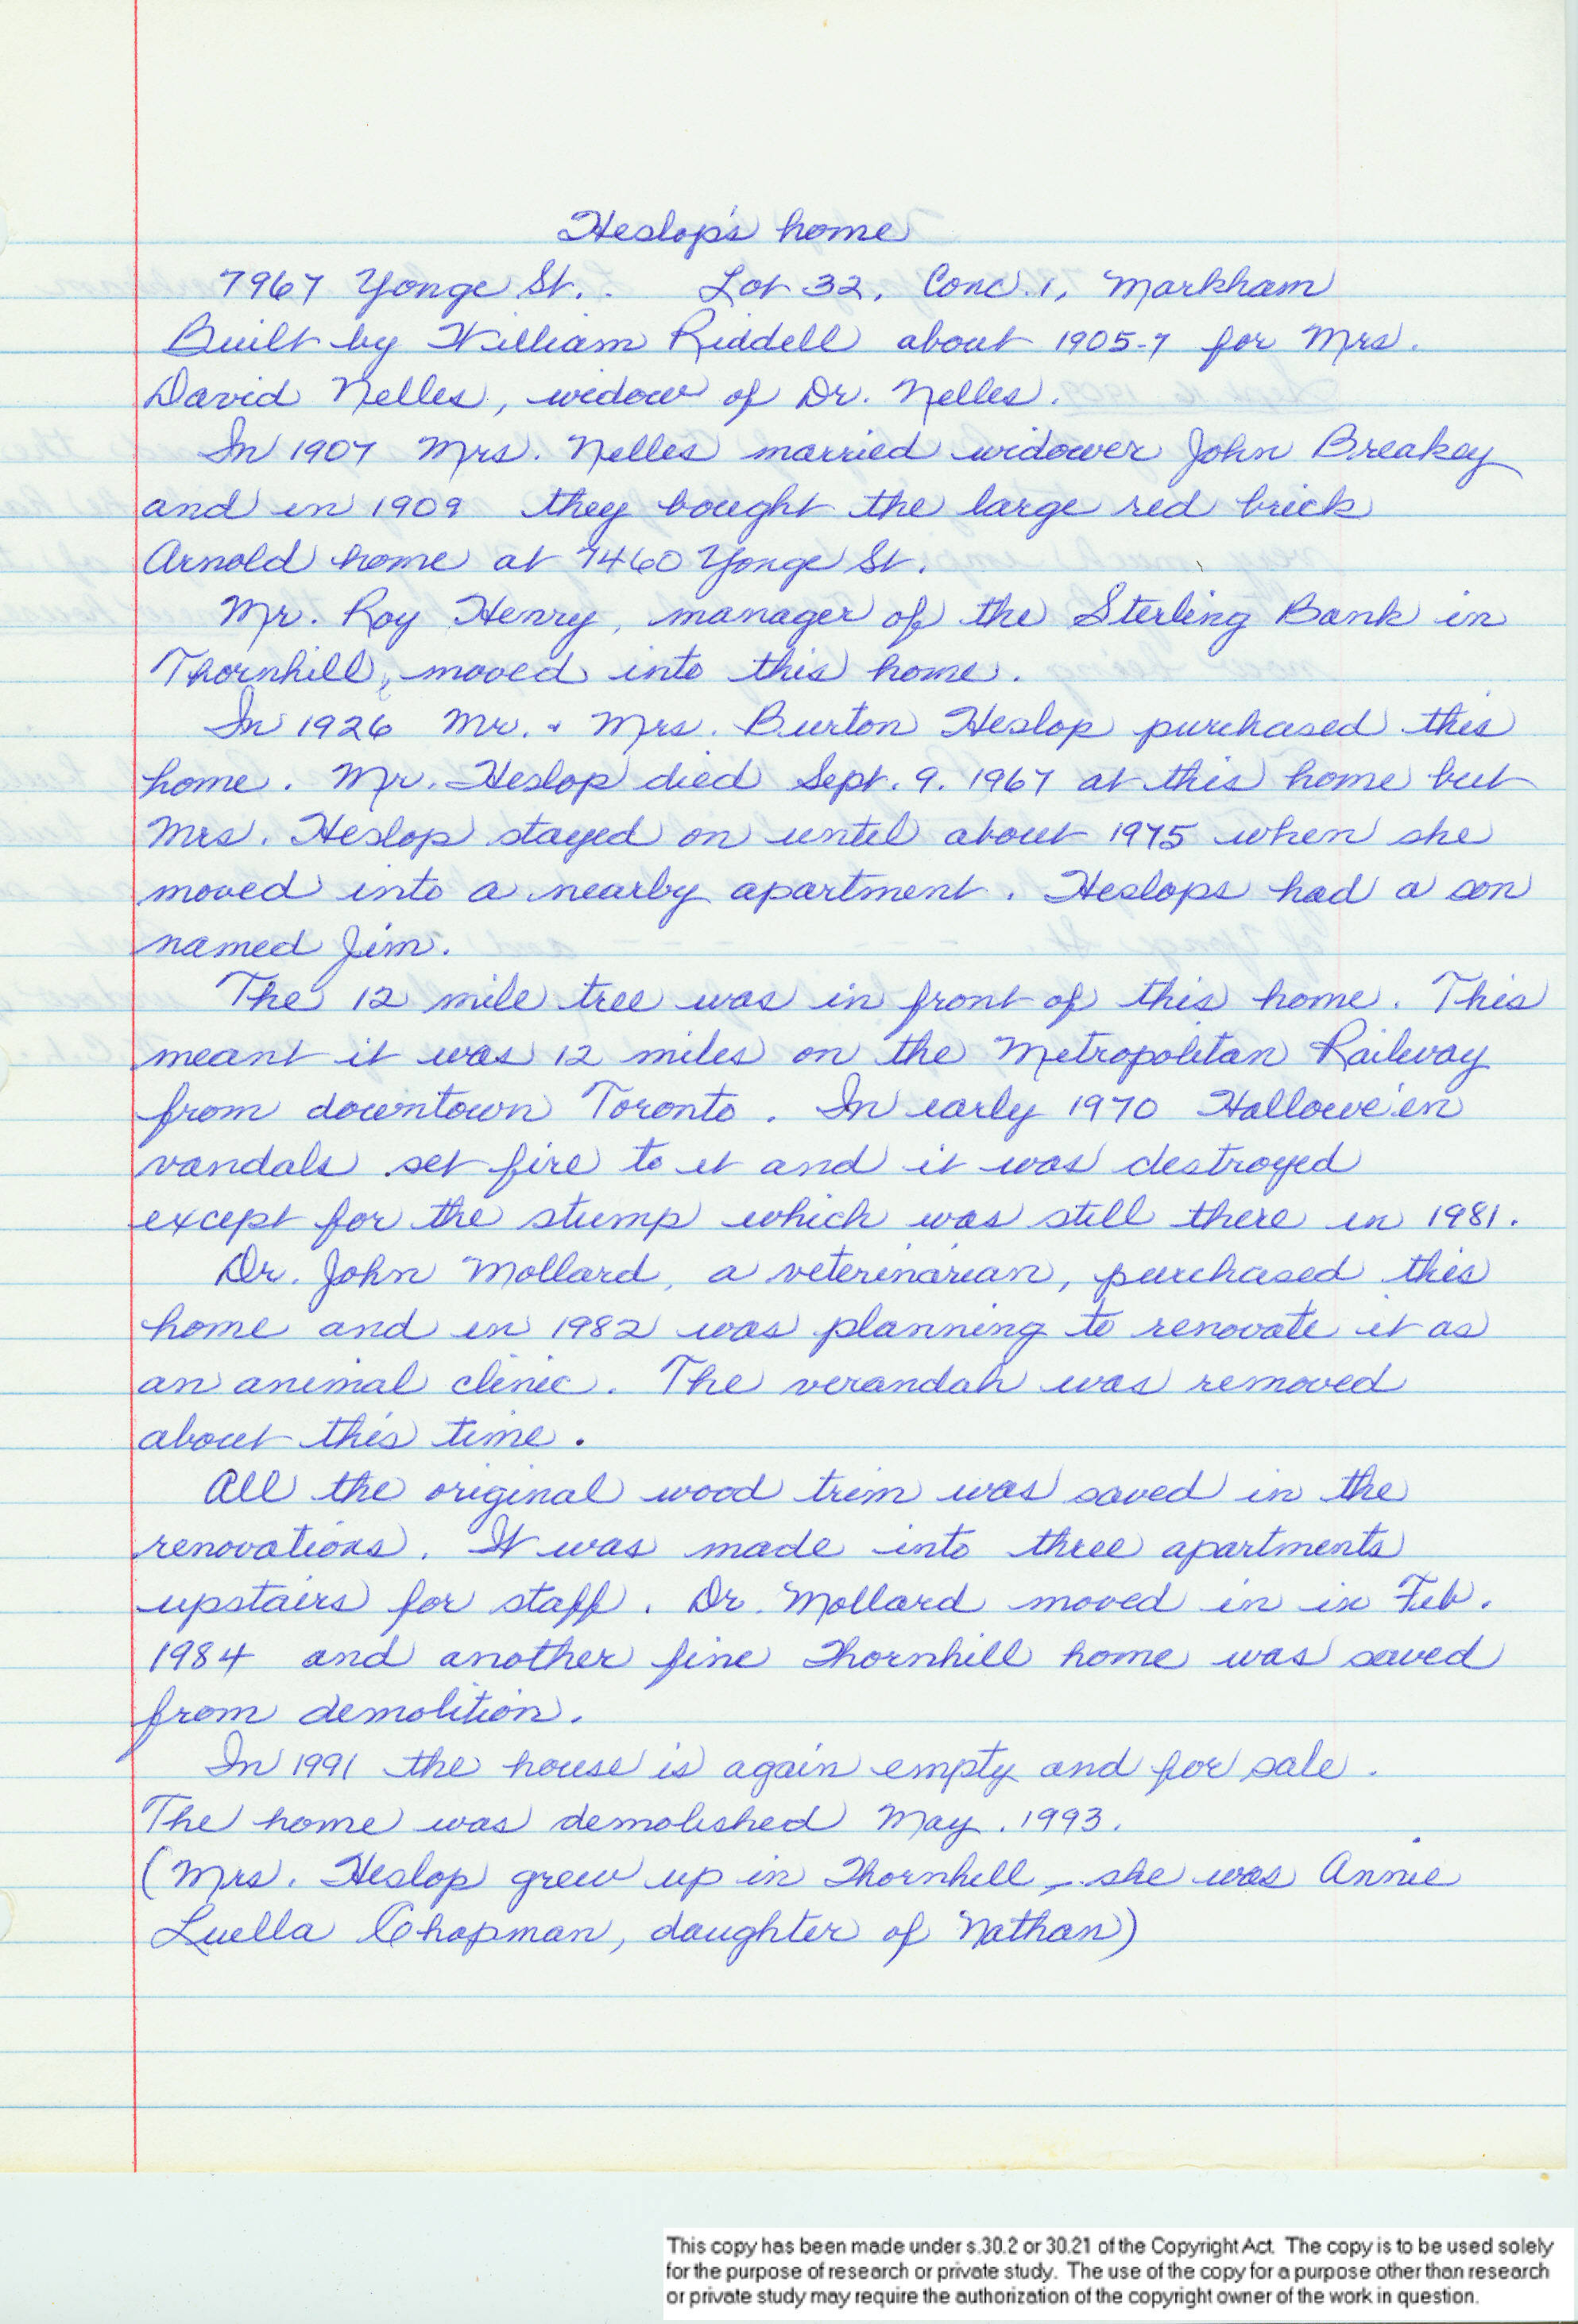 Heslop's home
7967 Yonge St. Lot 32, Conc. 1, Markham
Built by William Riddell about 1905-7 for Mrs.
David Nelles, widow of Dr. Nelles.
In 1907 Mrs. Nelles married widower John Breakey
and in 1909 they bought the large red brick
Arnold home at 7460 Yonge St.
Mr. Roy Henry, manager of the Sterling Bank in
Thornhill, moved into this home.
In 1926 Mr. & Mrs. Burton Heslop purchased this
home. Mr. Heslop died Sept. 9. 1967 at this home but
Mrs. Heslop stayed on until about 1975 when she
moved into a nearby apartment. Heslops had a son
named Jim.
The 12 mile tree was in front of this home. This
meant it was 12 miles on the Metropolitan Railway
from downtown Toronto. In early 1970 Hallowe'en
vandals set fire to it and it was destroyed
except for the stump which was still there in 1981.
Dr. John Mollard, a veterinarian, purchased this
home and in 1982 was planning to renovate it as
an animal clinic. The verandah was removed
about this time.
All the original wood trim was saved in the
renovations. It was made into three apartments
upstairs for staff. Dr. Mollard moved in in Feb.
1984 and another fine Thornhill home was saved
from demolition.
In 1991 the house is again empty and for sale.
The home was demolished May. 1993.
(Mrs. Heslop grew up in Thornhill - she was Annie
Luella Chapman, daughter of Nathan)
This copy has been made under s.30.2 or 30.21 of the Copyright Act. The copy is to be used solely
for the purpose of research or private study. The use of the copy for a purpose other than research
or private study may require the authorization of the copyright owner of the work in question.